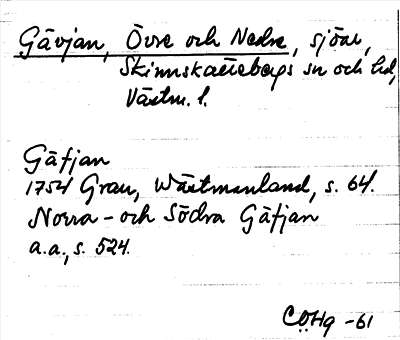 Gävjan, Övre och Nedre, sjöar,
Skinnskattebergs sn och hd,
Västm. l.
Gäfjan
1754 Grau, Wästmanland, s. 64.
Norra- och Södra Gäfjan
a.a., s. 524.
CÖHg -61